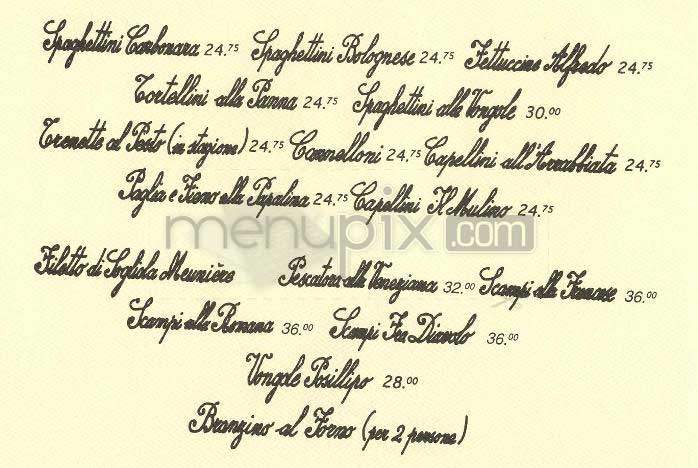 Spaghettini Carbonara 24.75 Spaghettini Bolognese 24.75 Fettuccine Alfredo 24.75
Tortellini alla Panna 24.75 Spaghettini alle Vongole 30.00
Trenette al Pesto (in stagione) 24.75 Cannelloni 24.75 Capellini all'Arrabbiata 24.75
Paglia e Fieno alla Papalina 24.75 Capellini Il Mulino 24.75
menupix.com
Filetto di Sogliola Meunière Pescatora alla Veneziana 32.00 Scampi alla Francese 36.00
Scampi alla Romana 36.00 Scampi Fra Diavolo 36.00
Vongole Posillipo 28.00
Branzino al Forno (per 2 persone)